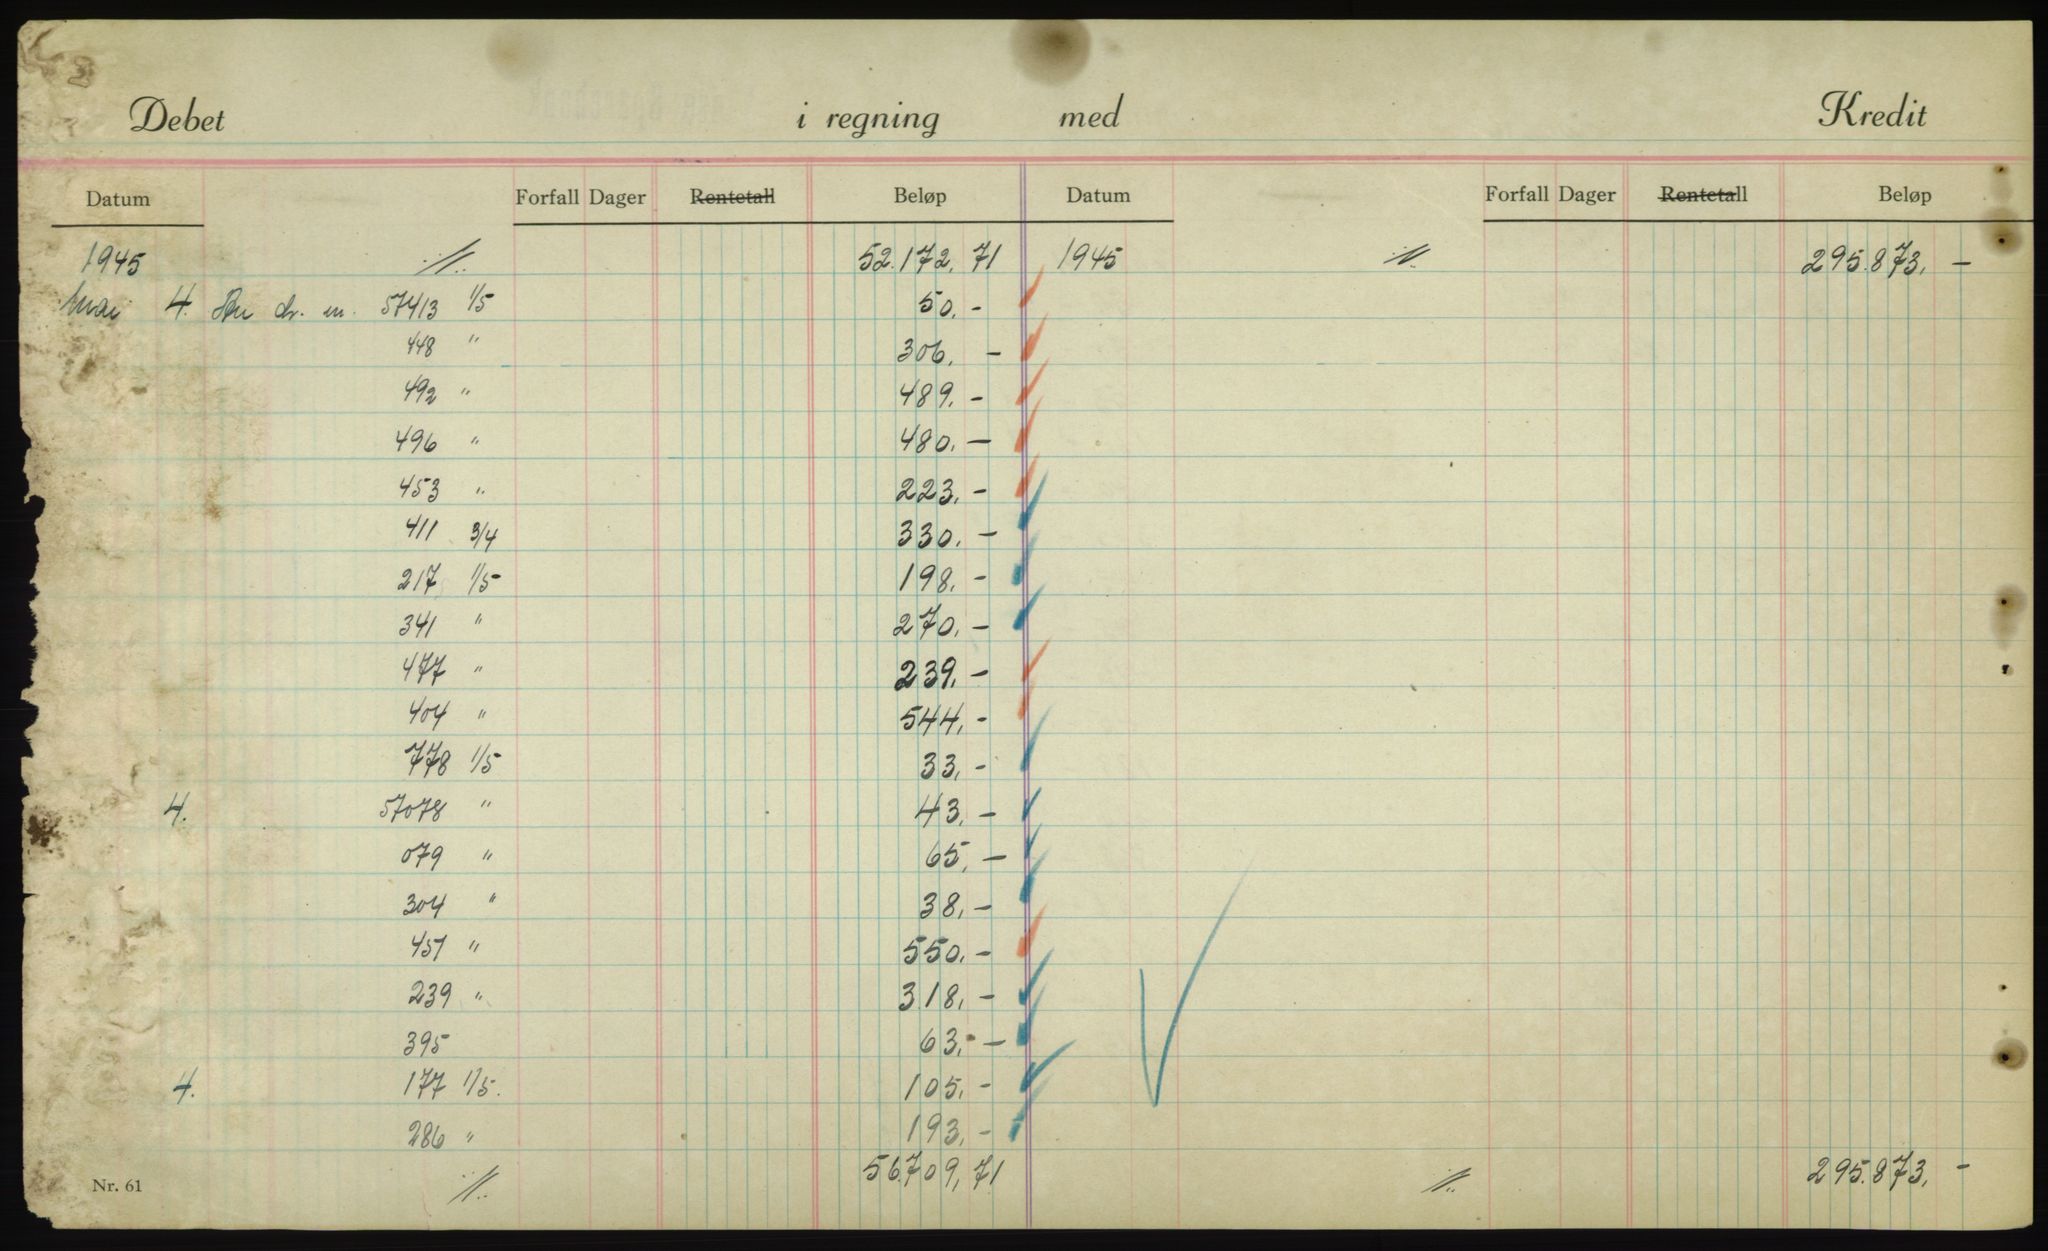 Debet i regning med Kredit
Datum Forfall Dager Rentetall Beløp Datum Forfall Dager Rentetall Beløp
1945 ·/.. 52.172,71 1945 ·/.. 295.873,—
Mai 4. dr. m. 57413 1/5 50.-
448 " 306.-
492 " 489.-
496 " 480.—
453 " 223.-
411 3/4 330.-
217 1/5 198.-
341 " 270.-
477 " 239.-
404 " 544.-
778 1/5 33.-
4. 57078 " 43.-
079 " 65.—
304 " 38.-
451 " 550.-
239 " 318.-
395 63.-
4. 177 1/5. 105.-
286 " 193.-
Nr. 61 ·/.. 56.709,71 ·/.. 295.873.-